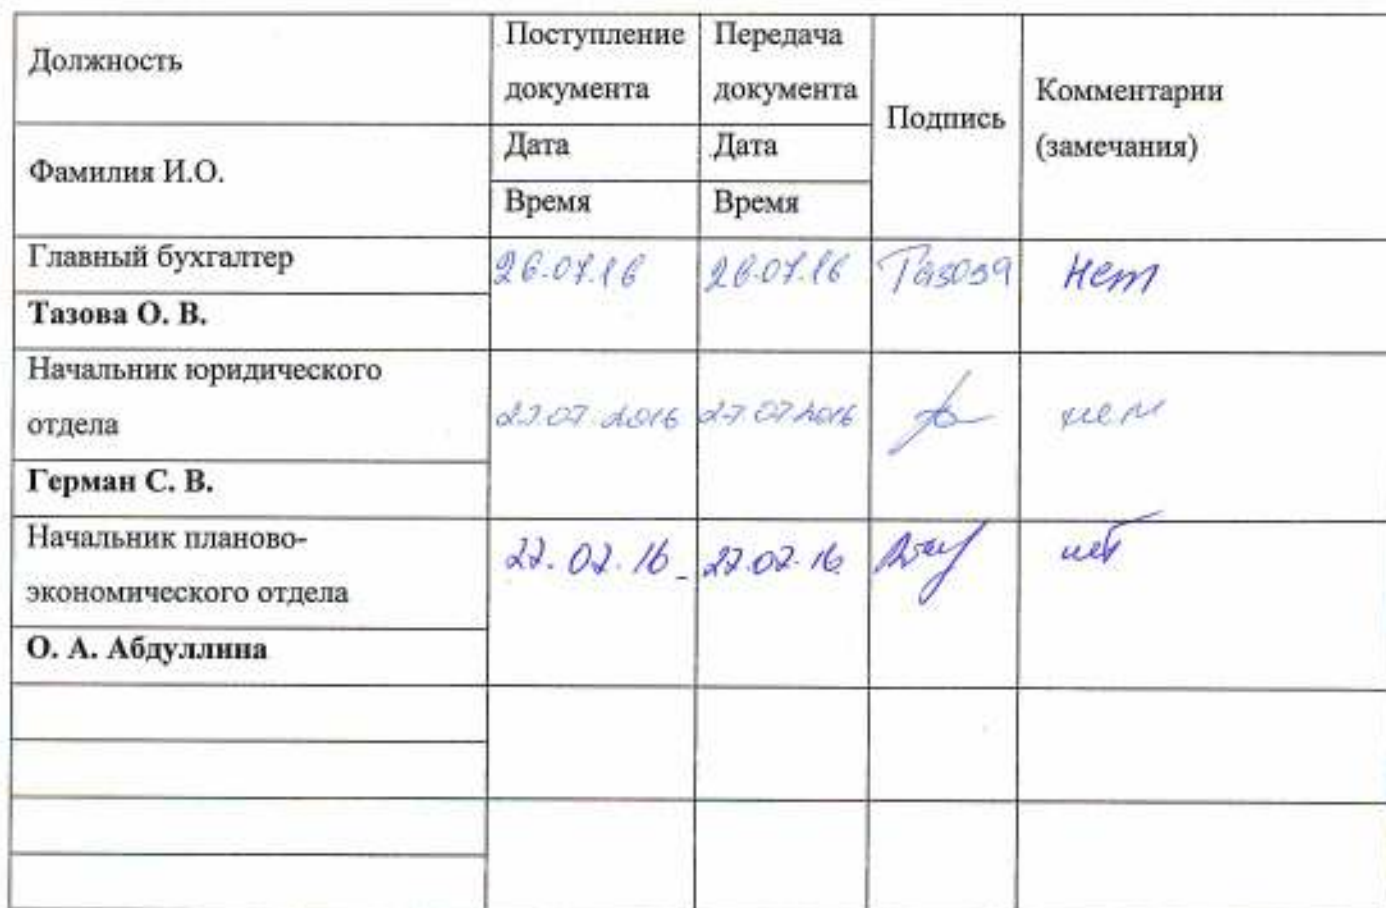 Должность
Поступление
документа
Передача
документа
Подпись
Комментарии
(замечания)
Фамилия И.О.
Дата
Дата
Время
Время
Главный бухгалтер
26.07.16
26.07.16
Тазова
Нет
Тазова О. В.
Начальник юридического
отдела
27.07.2016
27.07.2016
нет
Герман С. В.
Начальник планово-
экономического отдела
27.07.16
27.07.16
нет
О. А. Абдуллина